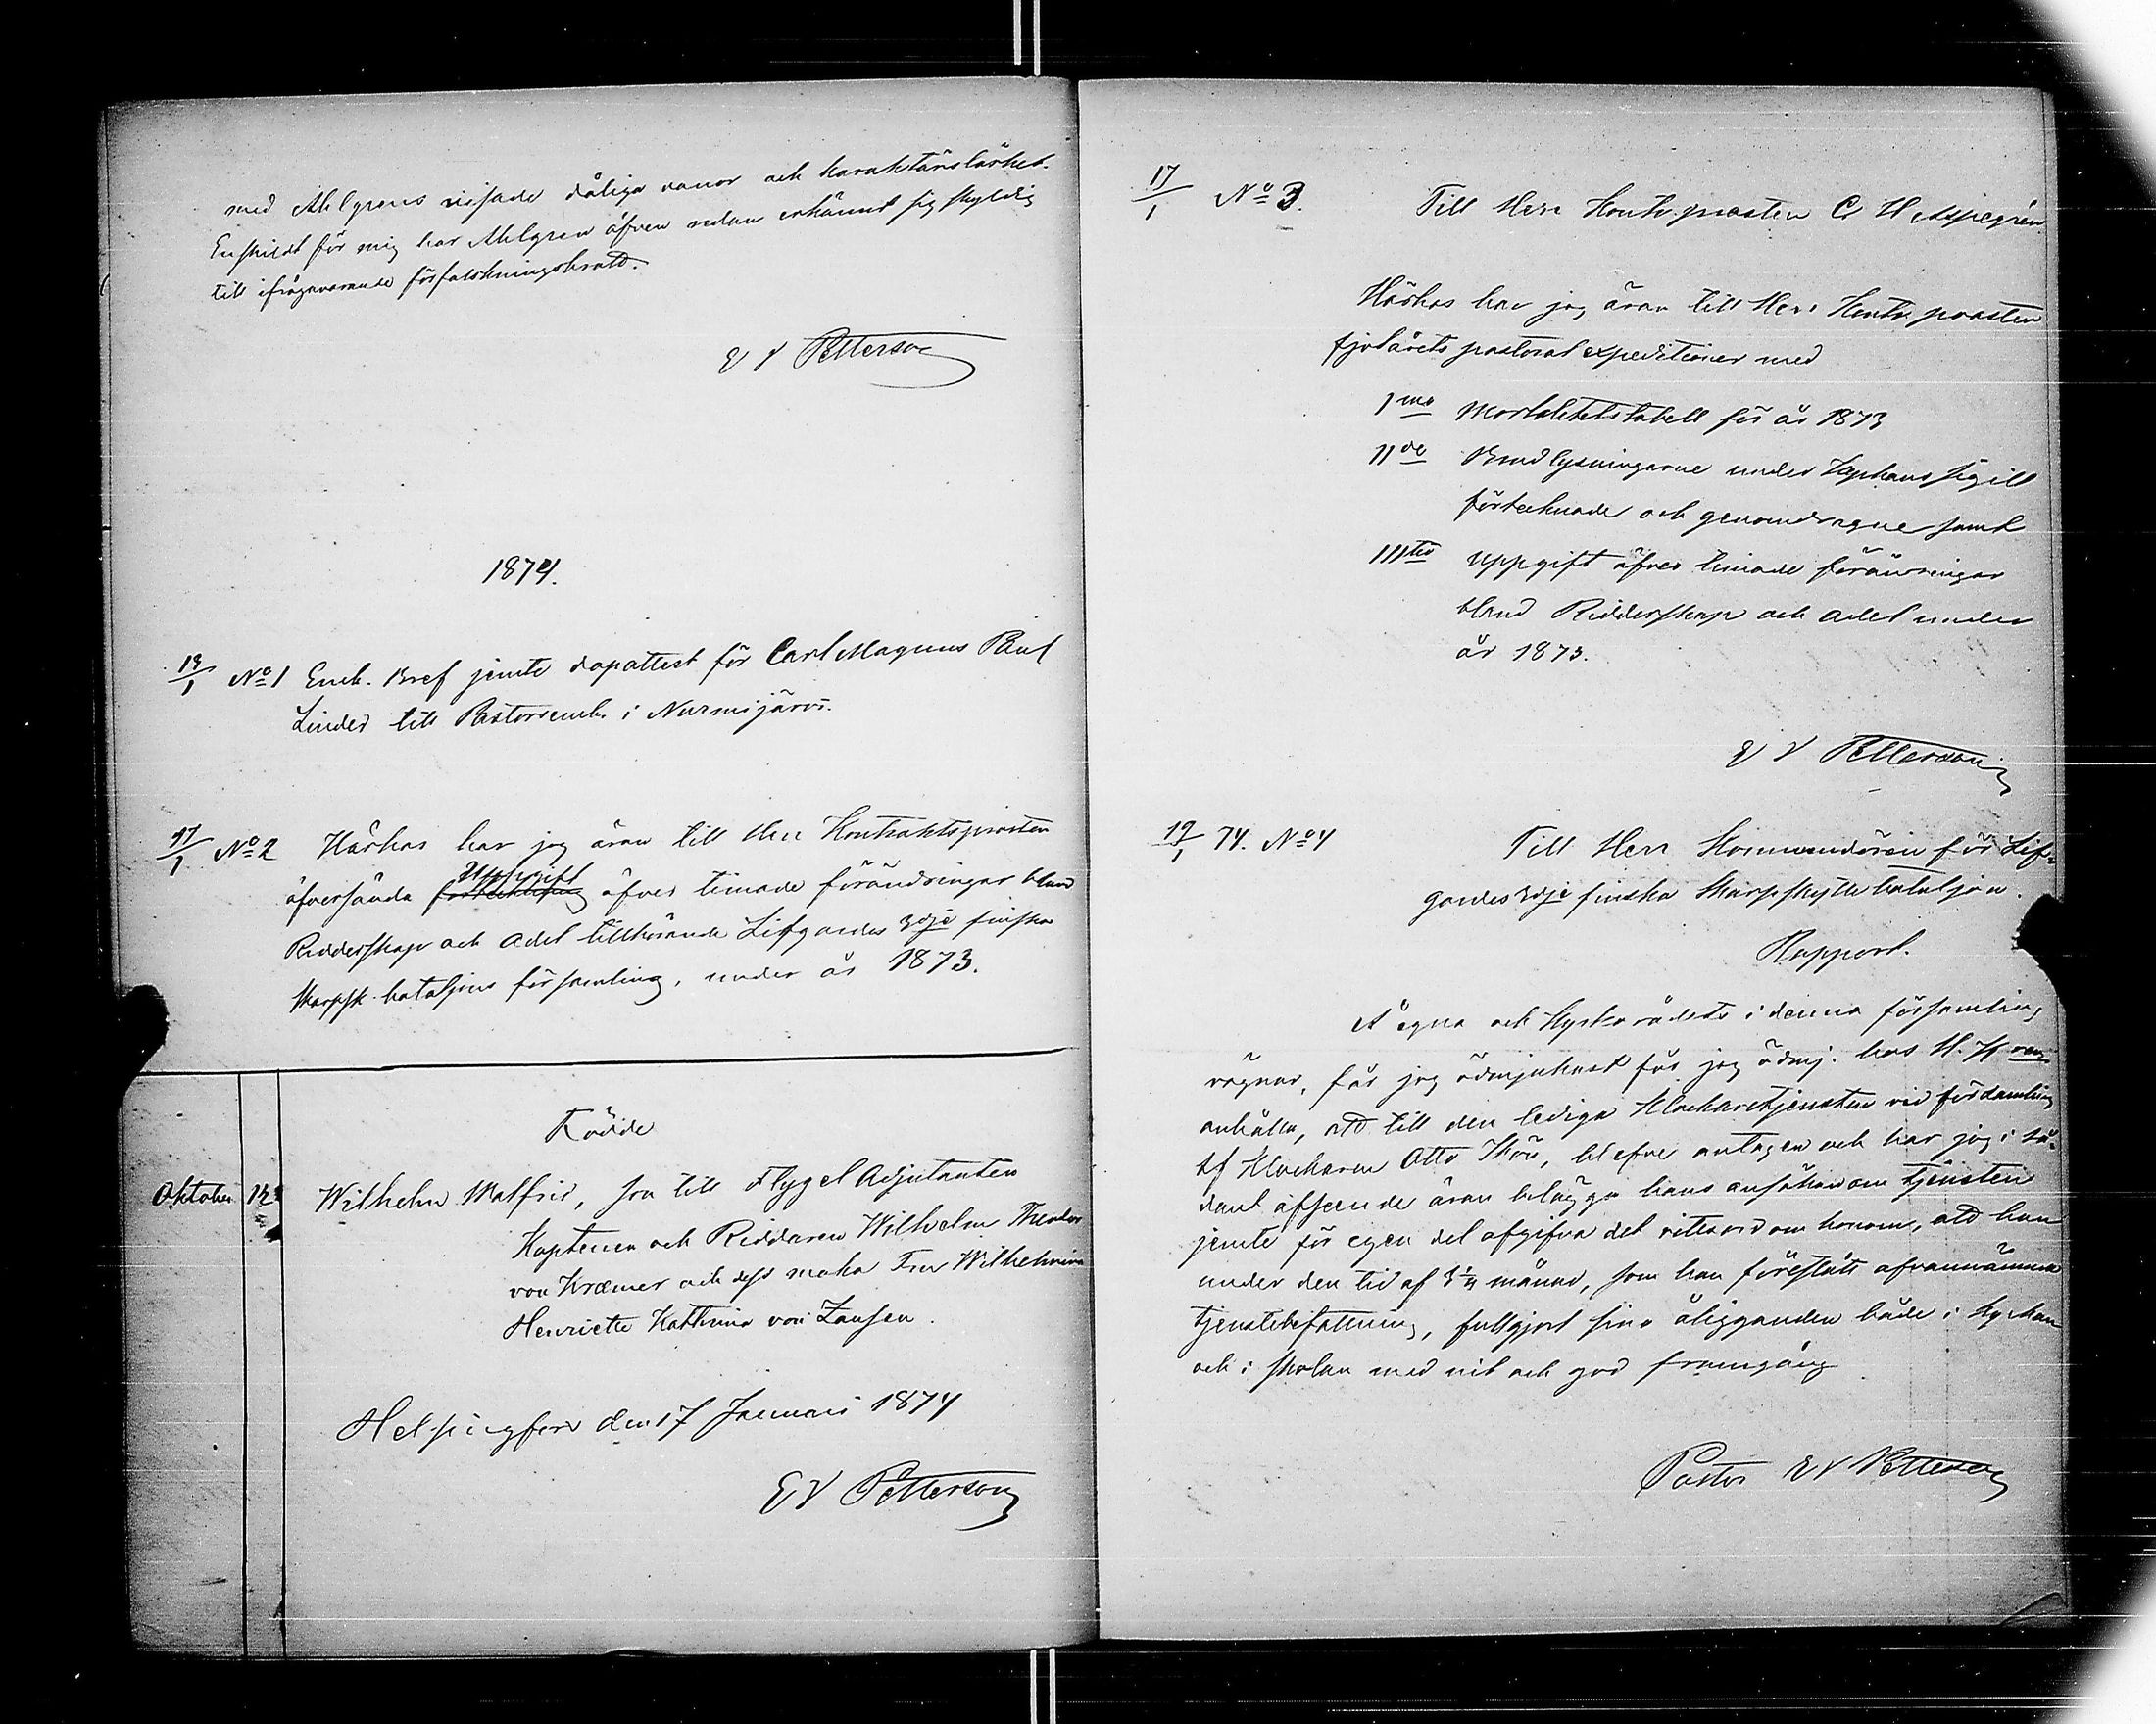 med Ahlgrens visade dåliga vanor och karaktärslöshet.
Enskildt för mig har Ahlgren äfven redan erkännt sig skyldig
till ifrågavarande förfalskningsbrott.
E V Petterson
1874.
13/1 No 1 Emb. Bref jemte dopattest för Carl Magnus Paul
Linder till Pastorsemb. i Nurmijärvi.
17/1 No 2 Härhos har jag äran till Herr Kontraktsprosten
Uppgift
öfversända förteckning öfver timade förändringar bland
Ridderskap och Adel tillhörande Lifgardes 3dje finska
Skarpsk. bataljons församling, under år 1873.
Födde
Oktober 12 Wilhelm Walfrid, son till Flygel Adjutanten
Kaptenen och Riddaren Wilhelm Theodor
von Kræmer och dess maka Fru Wilhelmina
Henriette Kathrina von Zansen.
Helsingfors den 17 Januari 1874
E V Petterson
17/1 No 3. Till Herr Kontr. prosten C H Aspegrén
Härhos har jag äran till Herr Kontr. prosten
fjolårets pastoral expeditioner med
1mo Mortalitetstabell för år 1873
IIdo Brudlysningarne under Kaplans sigill
förtecknade och genomdragne samt
IIItio Uppgift öfver timade förändringar
bland Ridderskap och Adel under
år 1873.
E V Petterson
19/1 74. No 4 Till Herr Kommendören för Lif-
gardes 3dje finska Skarpskytte bataljon.
Rapport.
Å egna och Kyrkorådets i denna församling
vägnar, får jag ödmjukast får jag ödmj. hos H. H
anhålla, att till den lediga Klockaretjensten vid församling
af Klockaren Otto Thón, blefve antagen och har jag i så-
dant afseende äran bilägga hans ansökan om tjensten
jemte för egen del afgifva det vitsord om honom, att han
under den tid af 3 1/2 månad, som han förestått ofvannämnda
tjenstebefattning, fullgjort sina åligganden både i kyrkan
och i skolan med nit och god framgång
Pastor E V Petterson